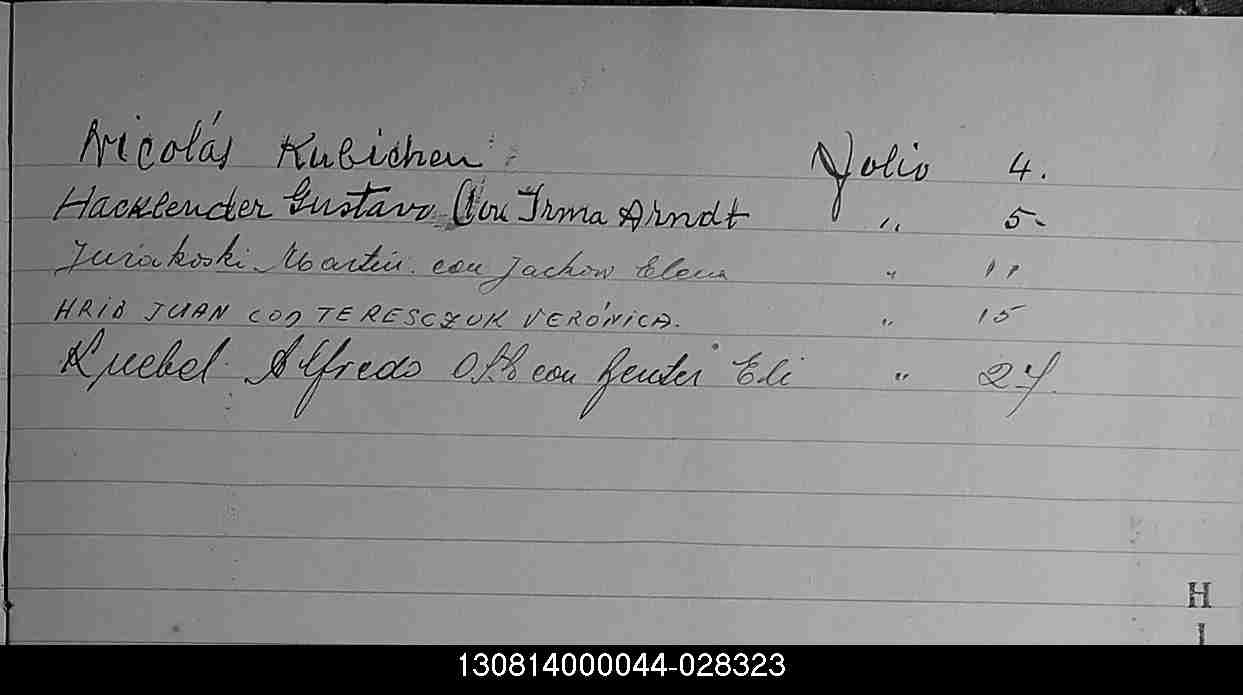 Nicolás Kubichen Folio 4.
Hacklender Gustavo Con Irma Arndt " 5-
Jurakoski Martin con Jachow Elena " 11
HRIB JUAN CON TERESCZUK VERÓNICA. " 15
Kuebel Alfredo Otto con Genter Eli " 27
H
I
130814000044-028323